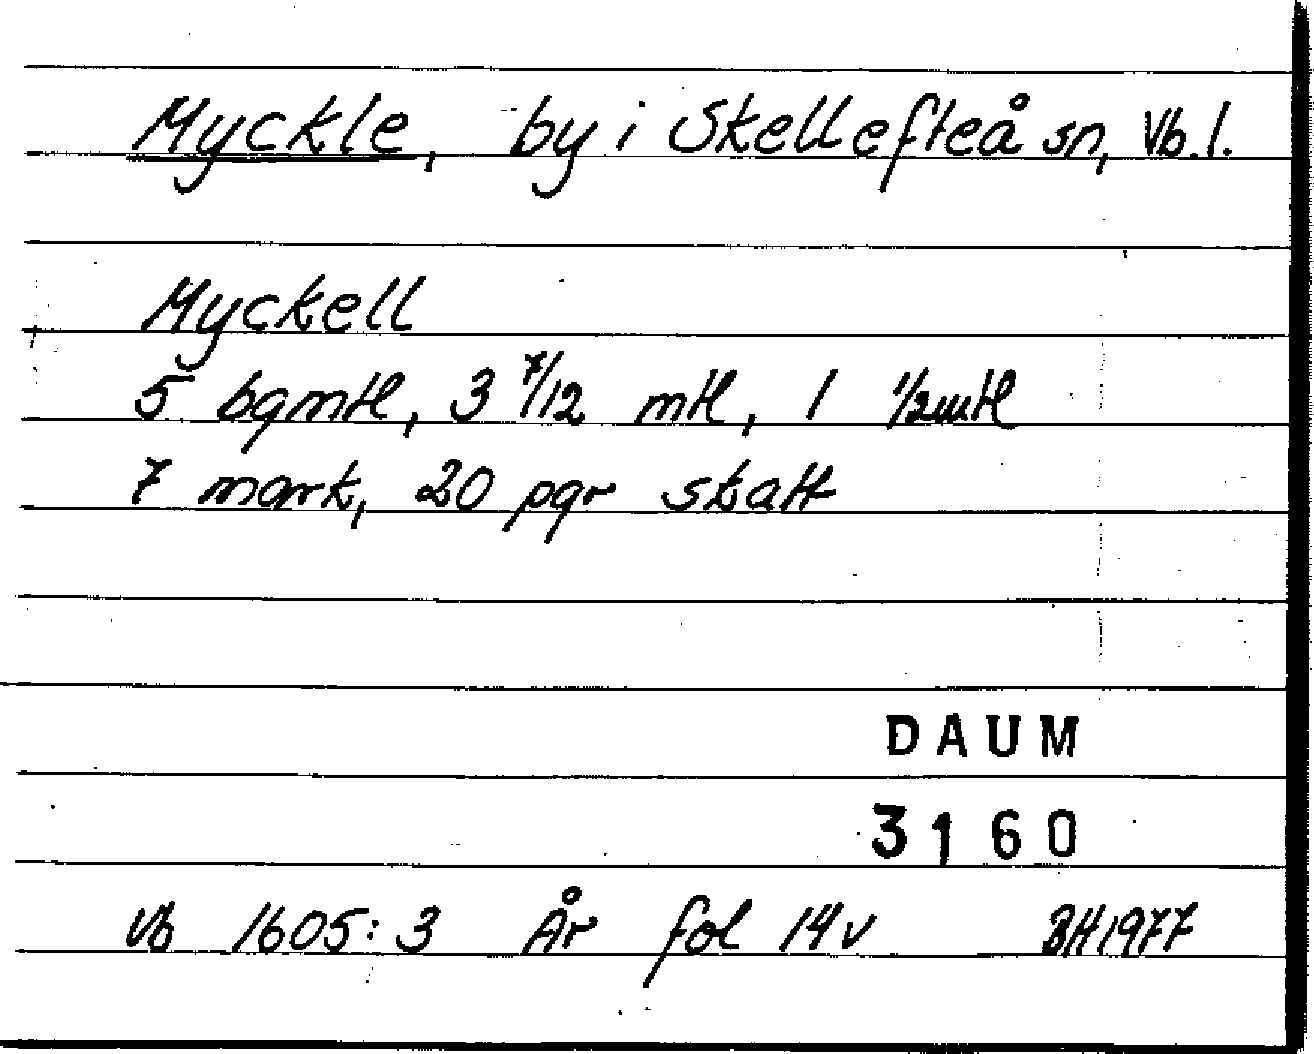 Myckle, by i Skellefteå sn, Vb.l.
Myckell
5 bgmtl, 3 7/12 mtl, 1 1/2mtl
7 mark, 20 pgr skatt
DAUM
3160
Vb 1605:3 År fol 14v BH1977